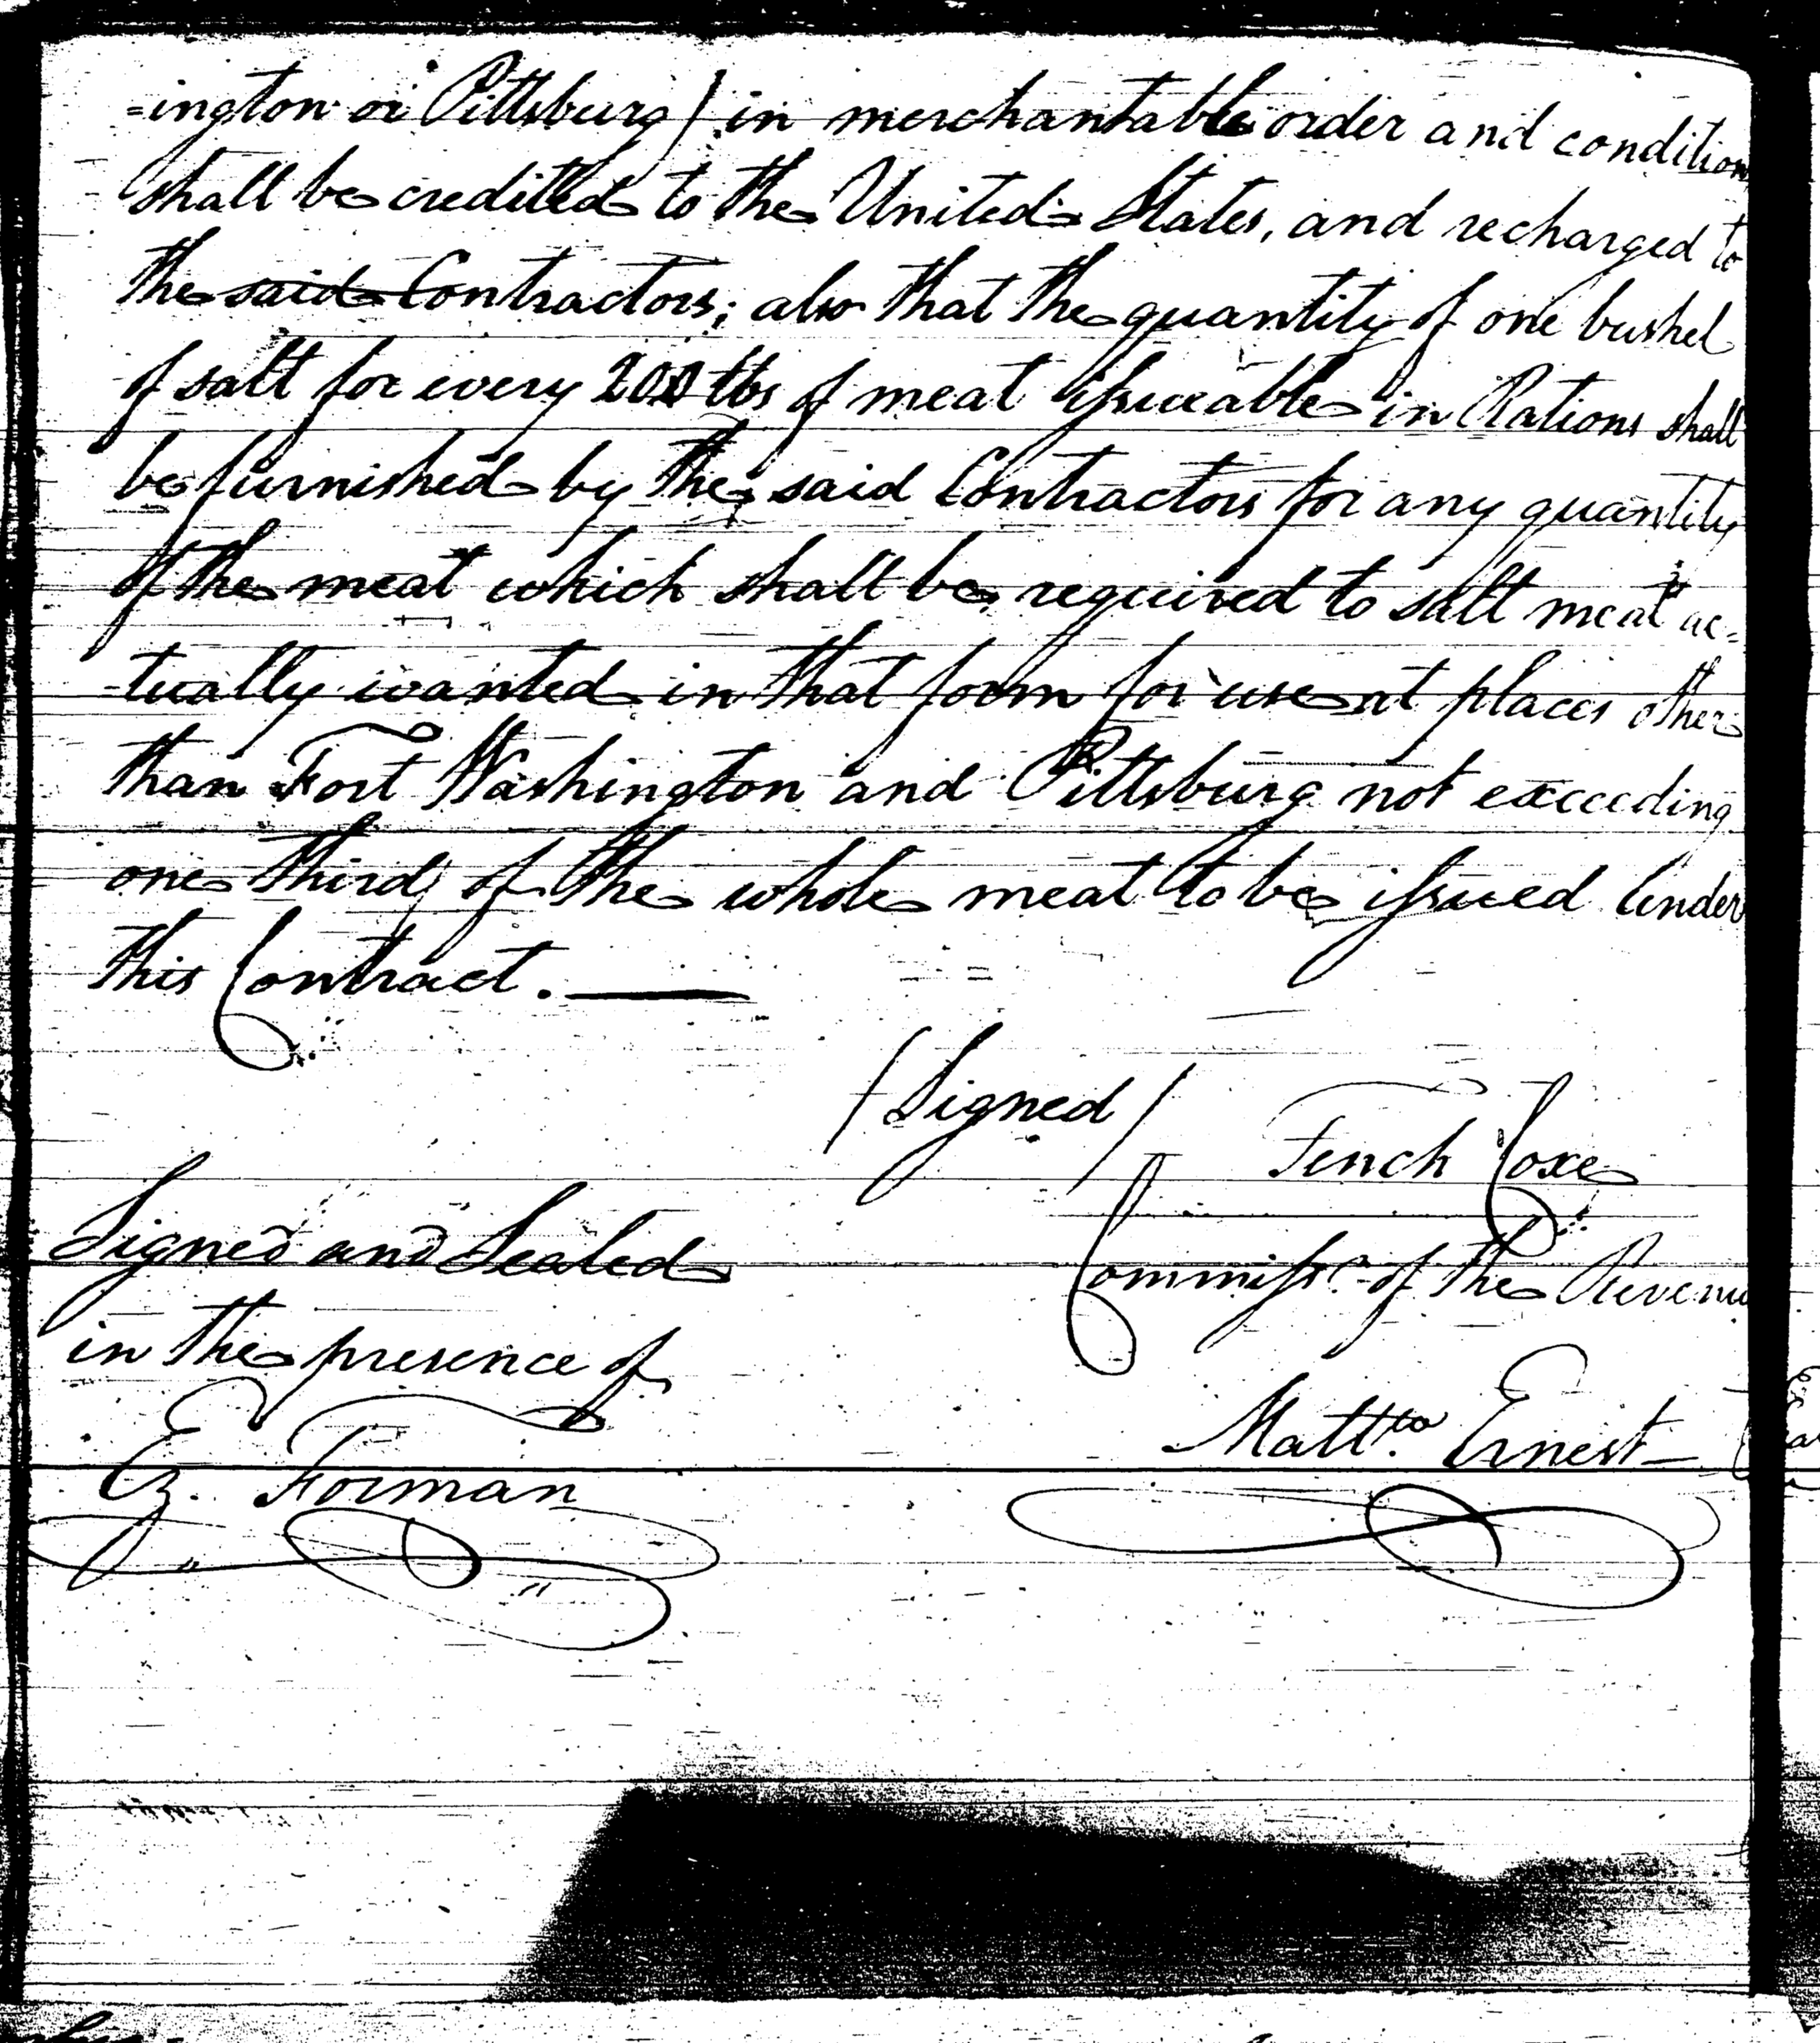 =ington or Pittsburg) in merchantable order and condition
shall be credited to the United States, and recharged to
the said Contractors; also that the quantity of one bushel
of salt for every 200 lbs of meat issueable in Rations shall
be furnished by the said Contractors for any quantity
of the meat which shall be required to salt meat ac=
-tually wanted in that form for use at places other
than Fort Washington and Pittsburg not exceeding
one third of the whole meat to be issued under
this Contract.
/Signed/ Tench Coxe
Commissr. of the Revenue
Signed and Sealed
in the presence of
Ez. Forman
Mattw. Ernest